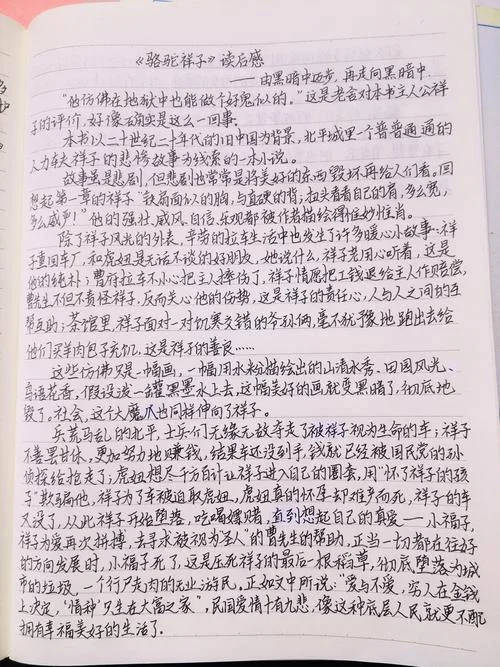 《骆驼祥子》读后感
——由黑暗中迈步,再走向黑暗中
“他仿佛在地狱中也能做个好鬼似的。”这是老舍对本书主人公祥
子的评价,好像确实是这么一回事。
本书以二十世纪二十年代的旧中国为背景,北平城里一个普普通通的
人力车夫祥子的悲惨故事为线索的一本小说。
故事虽是悲剧,但悲剧也常常是将美好的东西毁坏再给人们看。回
想起第一章的祥子“铁扇面似的胸,与直硬的背;扭头看看自己的肩,多么宽,
多么威严!”他的强壮,威风,自信,乐观都被作者描绘得惟妙惟肖。
除了祥子风光的外表,辛劳的拉车生活中也发生了许多暖心小故事:祥
子重回车厂,和虎妞是无话不谈的好朋友,她说什么,祥子老用心听着,这是
他的纯朴;曹府拉车不小心把主人摔伤了,祥子情愿把工钱退给主人作赔偿,
曹先生不但不责怪祥子,反而关心他的伤势,这是祥子的责任心,人与人之间的互
帮互助;茶馆里,祥子面对一对饥寒交错的爷孙俩,毫不犹豫地跑出去给
他们买羊肉包子充饥,这是祥子的善良……
这些仿佛只是一幅画,一幅用水粉描绘出的山清水秀、田园风光、
鸟语花香,假设泼一罐黑墨水上去,这幅美好的画就变黑暗了,彻底地
毁了。社会,这个大魔爪也同样伸向了祥子。
兵荒马乱的北平,士兵们无缘无故夺走了被祥子视为生命的车;祥子
不善罢甘休,更加努力地赚钱,结果车还没到手,钱就已经被国民党的孙
侦探给抢走了;虎妞想尽千方百计让祥子进入自己的圈套,用“怀了祥子的孩
子”欺骗他,祥子为了车被迫取虎妞,虎妞真的怀孕却难产而死,祥子的车
又没了,从此祥子开始堕落,吃喝嫖赌,直到想起自己的真爱——小福子,
祥子为爱再次拼搏,去寻求被视为“圣人”的曹先生的帮助,正当一切都在往好
的方向发展时,小福子死了,这是压死祥子的最后一根稻草,彻底堕落为城
市的垃圾,一个行尸走肉的无业游民。正如文中所说:“爱与不爱,穷人在金钱
上决定,‘情种’只生在大富之家”,民国爱情十有九悲,像这种底层人民就更不配
拥有幸福美好的生活了.